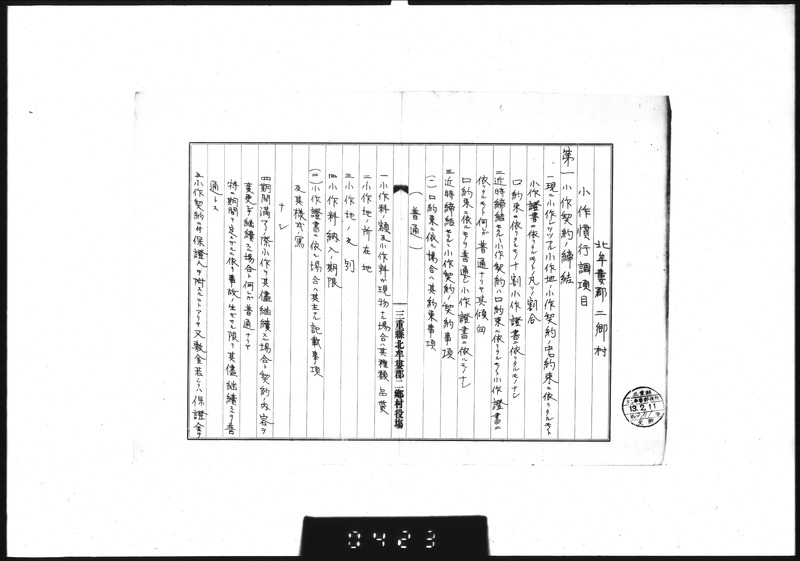 北牟婁郡二郷村
小作慣行調項目
第一 小作契約ノ締結
一現ニ小作シツツアル小作地ノ小作契約ノ中口約束ニ依リタルモノト
小作證書ニ依リタルモノトノ凡ソノ割合
口約束ニ依リタルモノ十割小作證書ニ依リタルモノナシ
二近時締結セラルル小作契約ハ口約束ニ依リタルモノト小作證書ニ
依リタルモノト何レガ普通ナリヤ其傾向
口約束ニ依ルモノヲ普通トシ小作證書ニ依ルモノナシ
三近時締結セラルル小作契約ノ契約事項
(一)口約束ニ依ル場合ハ其約束事項
(普通)
三重縣北牟婁郡二郷村役場
一小作料ノ額及小作料ガ現物ナル場合ハ其種類品質
二小作地ノ所在地
三小作地ノ反別
四小作料納入ノ期限
(二)小作證書ニ依ル場合ハ其主ナル記載事項
及其様式ノ寫
ナシ
四期間滿了ノ際小作ヲ其儘継續スル場合ト契約ノ内容ヲ
変更シテ継續スル場合ト何レガ普通ナリヤ
特ニ期間ノ定メナキニ依リ事故ノ生ゼザル限リ其儘継續スルヲ普
通トス
五小作契約ニ付保證人ヲ附スルコトアリヤ又敷金若クハ保證金ヲ
13.2.11
0423